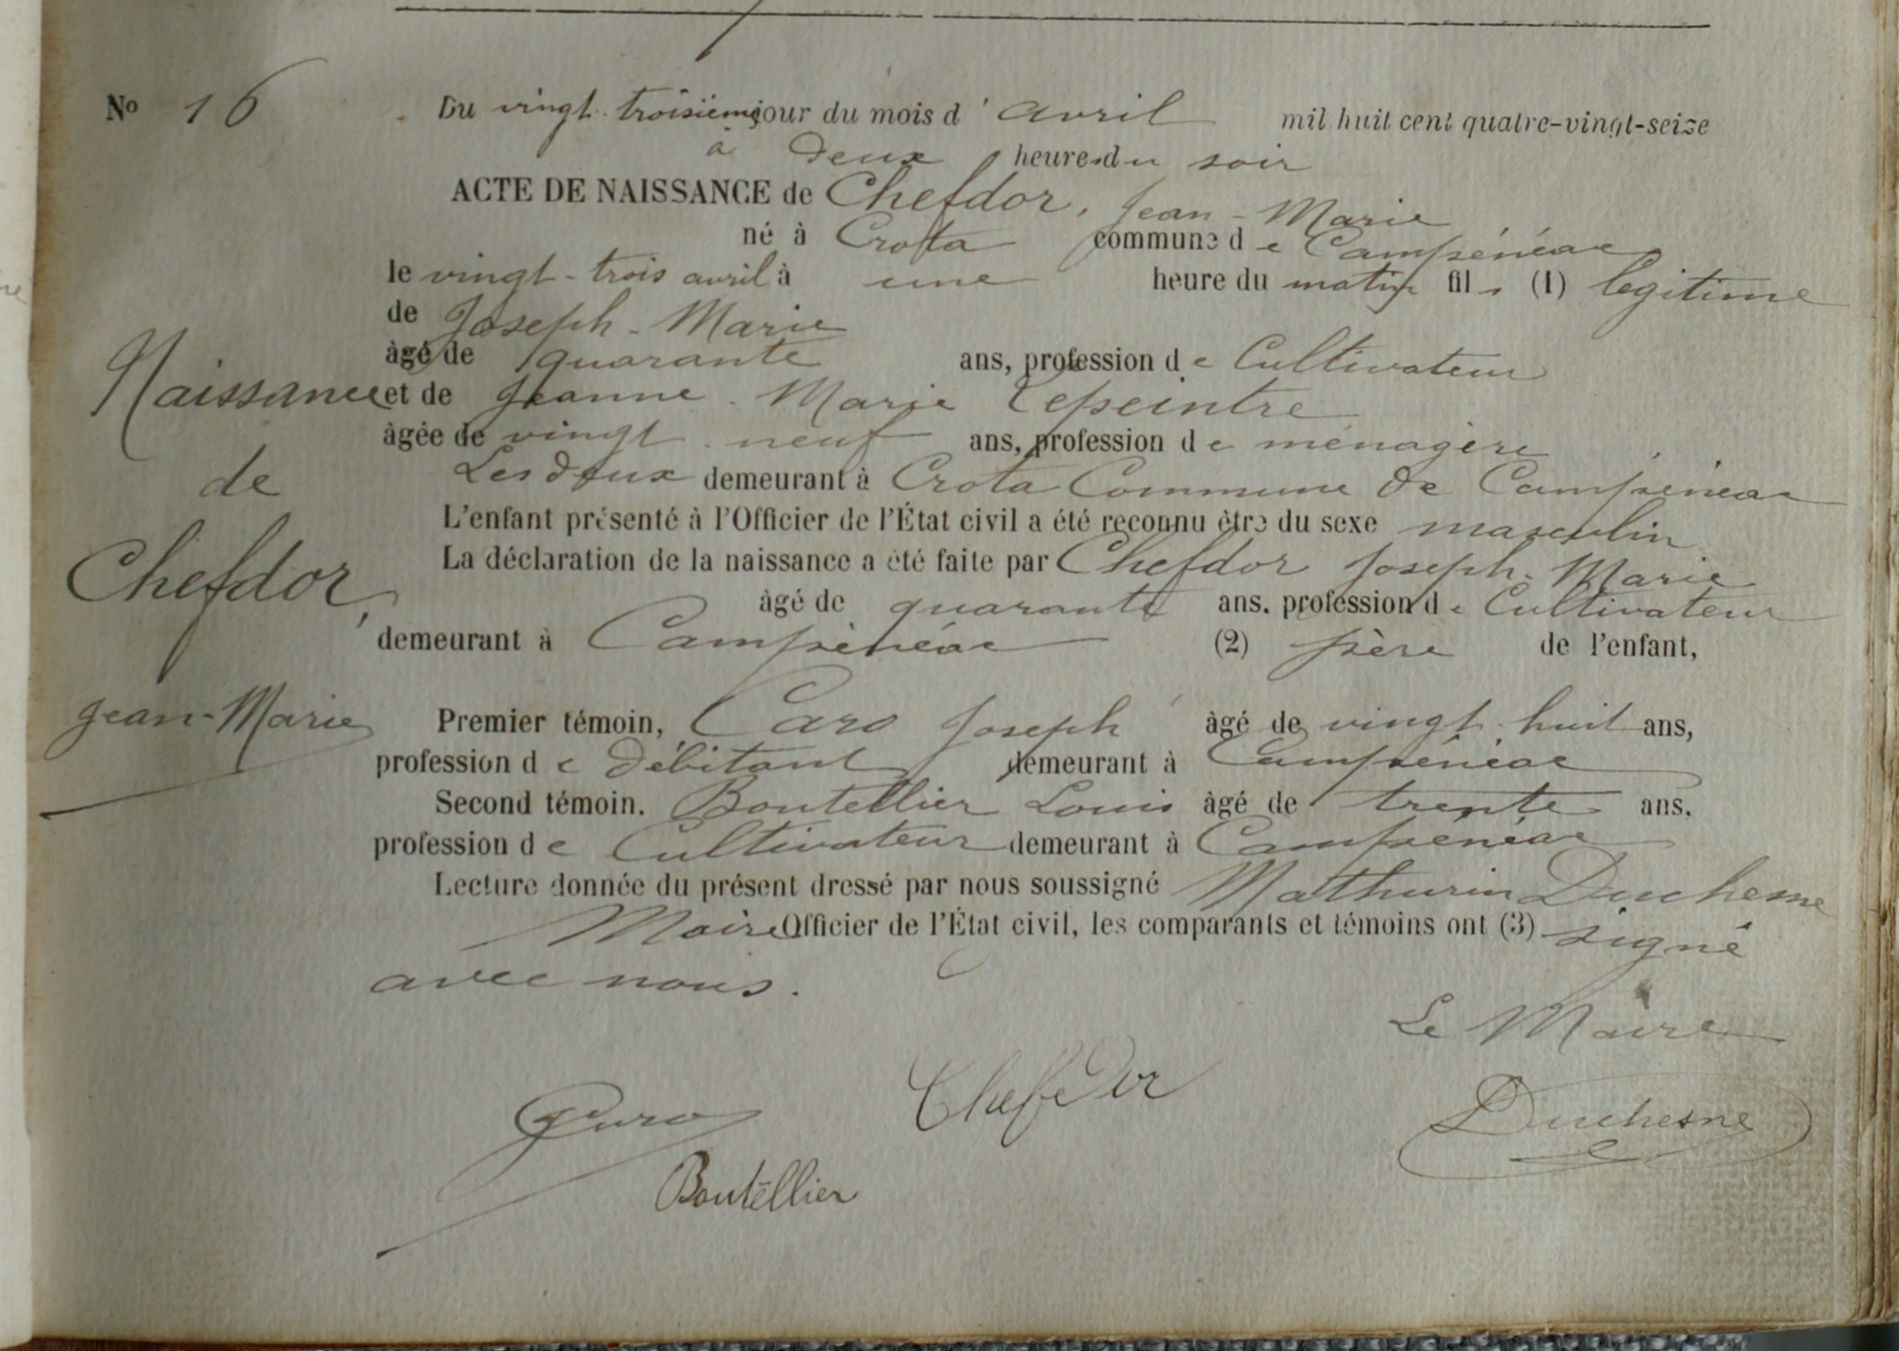 No 16
Du vingt-troisième jour du mois d'avril mil huit cent quatre-vingt-seize
à deux heures du soir
ACTE DE NAISSANCE de Chefdor, Jean-Marie
né à Crota commune de Campénéac
le vingt-trois avril à une heure du matin fils (1) legitime
de Joseph-Marie
âgé de quarante ans, profession de Cultivateur
et de Jeanne-Marie Lepeintre
âgée de vingt-neuf ans, profession de ménagère
Les deux demeurant à Crota Commune de Campénéac
L'enfant présenté à l'Officier de l'État civil a été reconnu être du sexe masculin
La déclaration de la naissance a été faite par Chefdor Joseph-Marie
âgé de quarante ans, profession de Cultivateur
demeurant à Campénéac (2) père de l'enfant,
Premier témoin, Caro Joseph âgé de vingt-huit ans,
profession de débitant demeurant à Campénéac
Second témoin. Boutellier Louis âgé de trente ans.
profession de Cultivateur demeurant à Campénéac
Lecture donnée du présent dressé par nous soussigné Mathurin Duchesne
Maire Officier de l'État civil, les comparants et témoins ont (3) signé
avec nous.
Naissance
de
Chefdor,
Jean-Marie
Le Maire
Caro Chefdor Duchesne
Boutellier